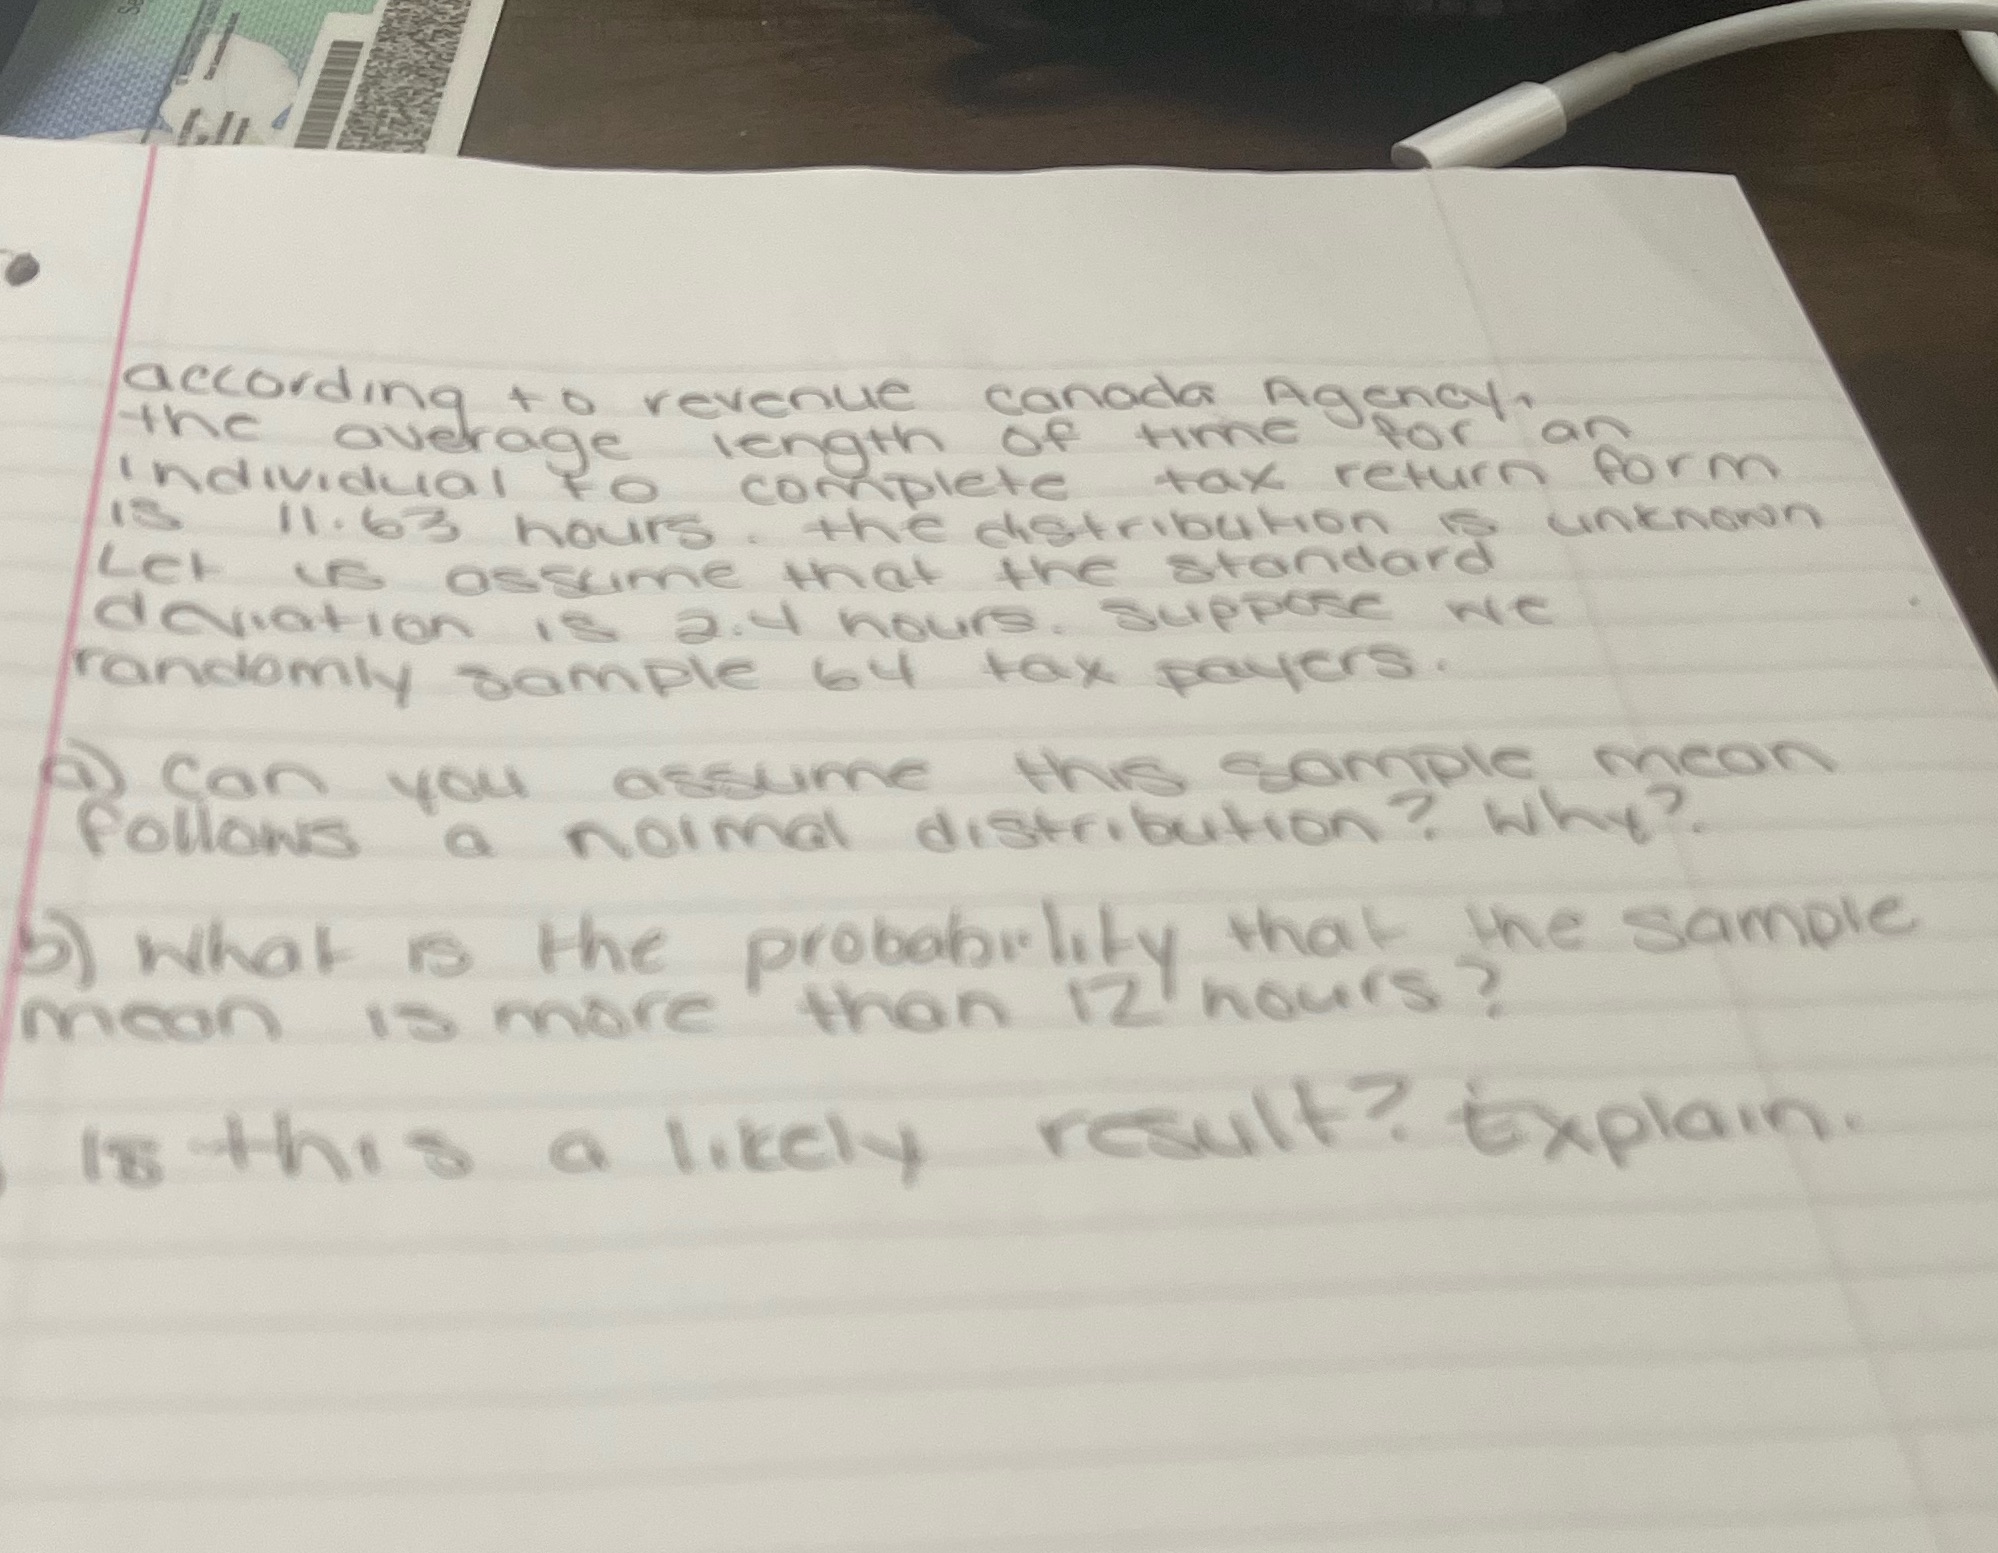 according to revenue canada Agency,
the average length of time for an
individual to complete tax return form
is 11.63 hours. the distribution is unknown
Let us assume that the standard
deviation is 2.4 hours. suppose we
randomly sample 64 tax payers.
a) Can you assume this sample mean
follows a normal distribution? Why?
b) What is the probability that the sample
mean is more than 12 hours?
Is this a likely result? Explain.